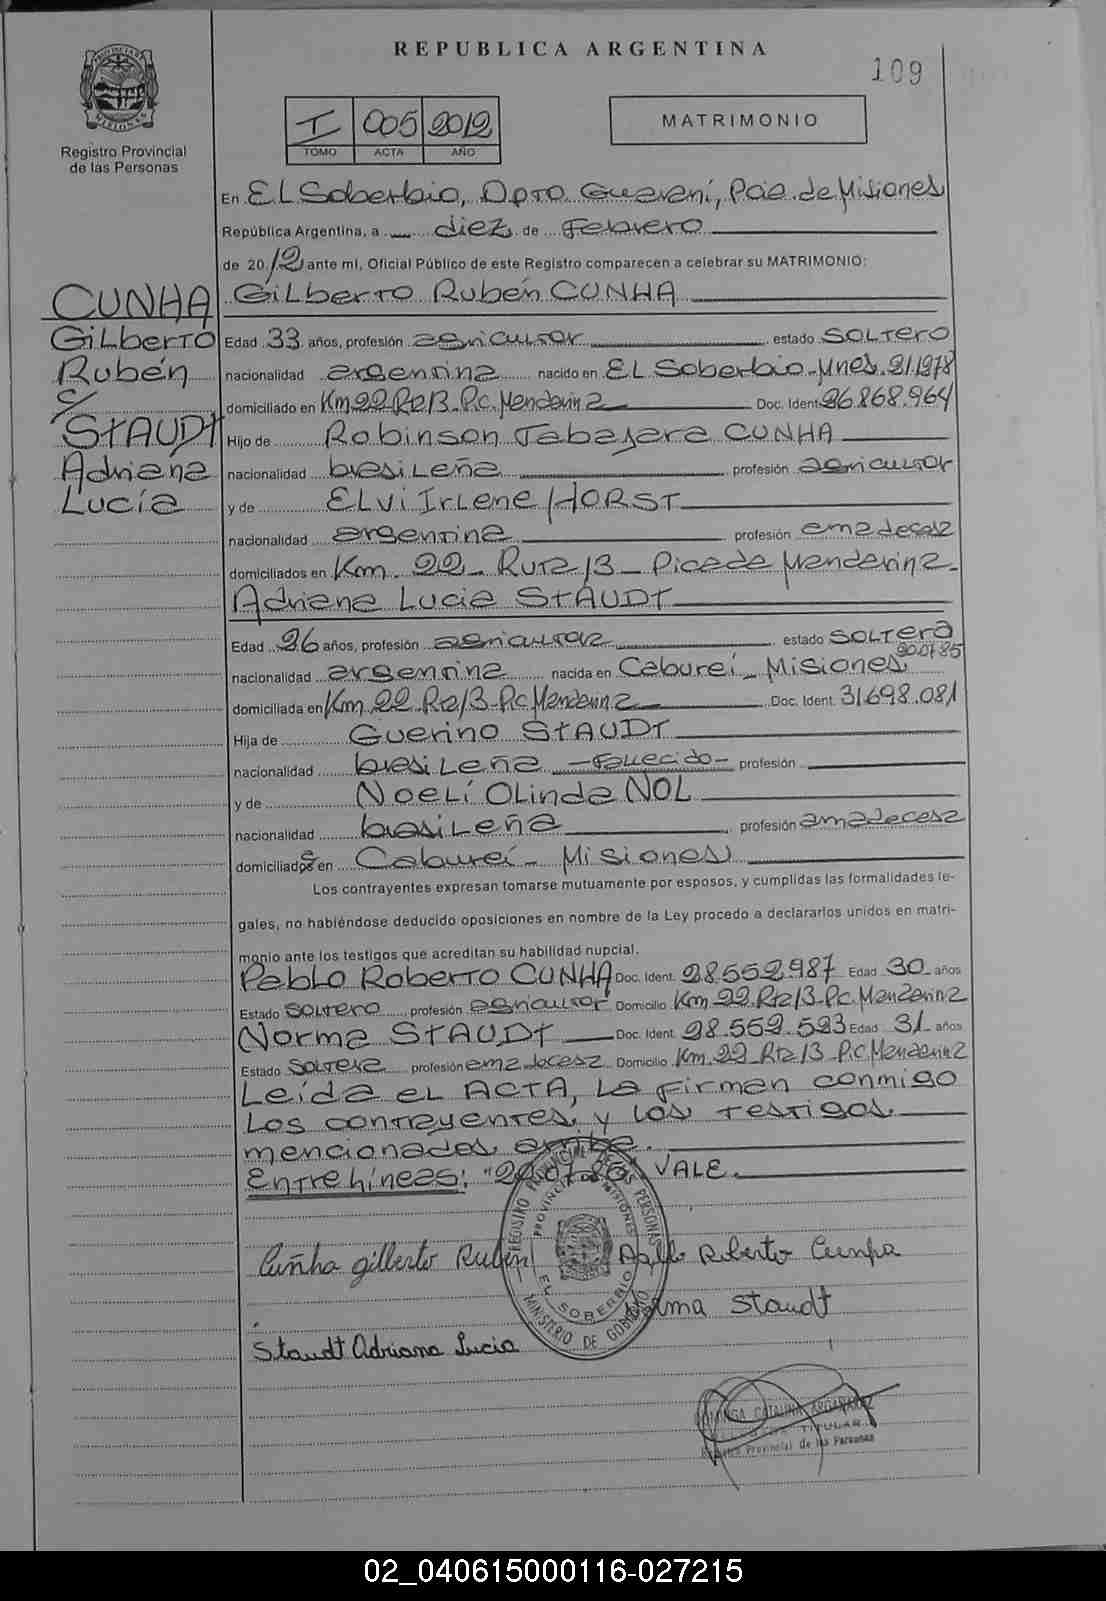 REPUBLICA ARGENTINA
109
PROVINCIA DE MISIONES
Registro Provincial
de las Personas
I 005 2012
TOMO ACTA AÑO
MATRIMONIO
En EL Soberbio, Dpto Guaraní, Pcia. de Misiones
República Argentina, a diez de Febrero
de 2012 ante mí, Oficial Público de este Registro comparecen a celebrar su MATRIMONIO:
CUNHA
Gilberto
Rubén
c/
STAUDT
Adriana
Lucía
Gilberto Rubén CUNHA
Edad 33 años, profesión agricultor estado SOLTERO
nacionalidad argentina nacido en EL Soberbio-Mnes. 2/1/1978
domiciliado en Km 22 Rta 13-Pc. Mandarina Doc. Ident. 26.868.964
Hijo de Robinson Tabajara CUNHA
nacionalidad brasileña profesión agricultor
y de ELvi Irlene HORST
nacionalidad argentina profesión ama de casa
domiciliados en Km. 22 - Ruta 13 - Picada Mandarina-
Adriana Lucia STAUDT
Edad 26 años, profesión agricultora estado SOLTERA
20.07.85
nacionalidad argentina nacida en Caburei - Misiones
domiciliada en Km 22 Rta 13-Pc. Mandarina Doc. Ident. 31.698.081
Hija de Guerino STAUDT
nacionalidad brasileña -fallecido- profesión
y de Noelí Olinda NOL
nacionalidad brasileña profesión ama de casa
domiciliada en Caburei - Misiones
Los contrayentes expresan tomarse mutuamente por esposos, y cumplidas las formalidades le-
gales, no habiéndose deducido oposiciones en nombre de la Ley procedo a declararlos unidos en matri-
monio ante los testigos que acreditan su habilidad nupcial.
Pablo Roberto CUNHA Doc. Ident. 28.552.987 Edad 30 años
Estado SOLTERO profesión agricultor Domicilio Km 22 Rta 13-Pc. Mandarina
Norma STAUDT Doc. Ident. 28.552.523 Edad 31 años
Estado SOLTERA profesión ama de casa Domicilio Km. 22 Rta 13 Pc. Mandarina
Leída el ACTA, la firman conmigo
los contrayentes y los testigos
mencionados arriba.
Entre líneas: VALE.
REGISTRO PROVINCIAL DE LAS PERSONAS
PROVINCIA DE MISIONES
EL SOBERBIO
MINISTERIO DE GOBIERNO
Cuñha gilberto Rubén
Pablo Roberto Cunha
Norma Staudt
Staudt Adriana Lucia
CATALINA
TITULAR
Registro Provincial de las Personas
02_040615000116-027215